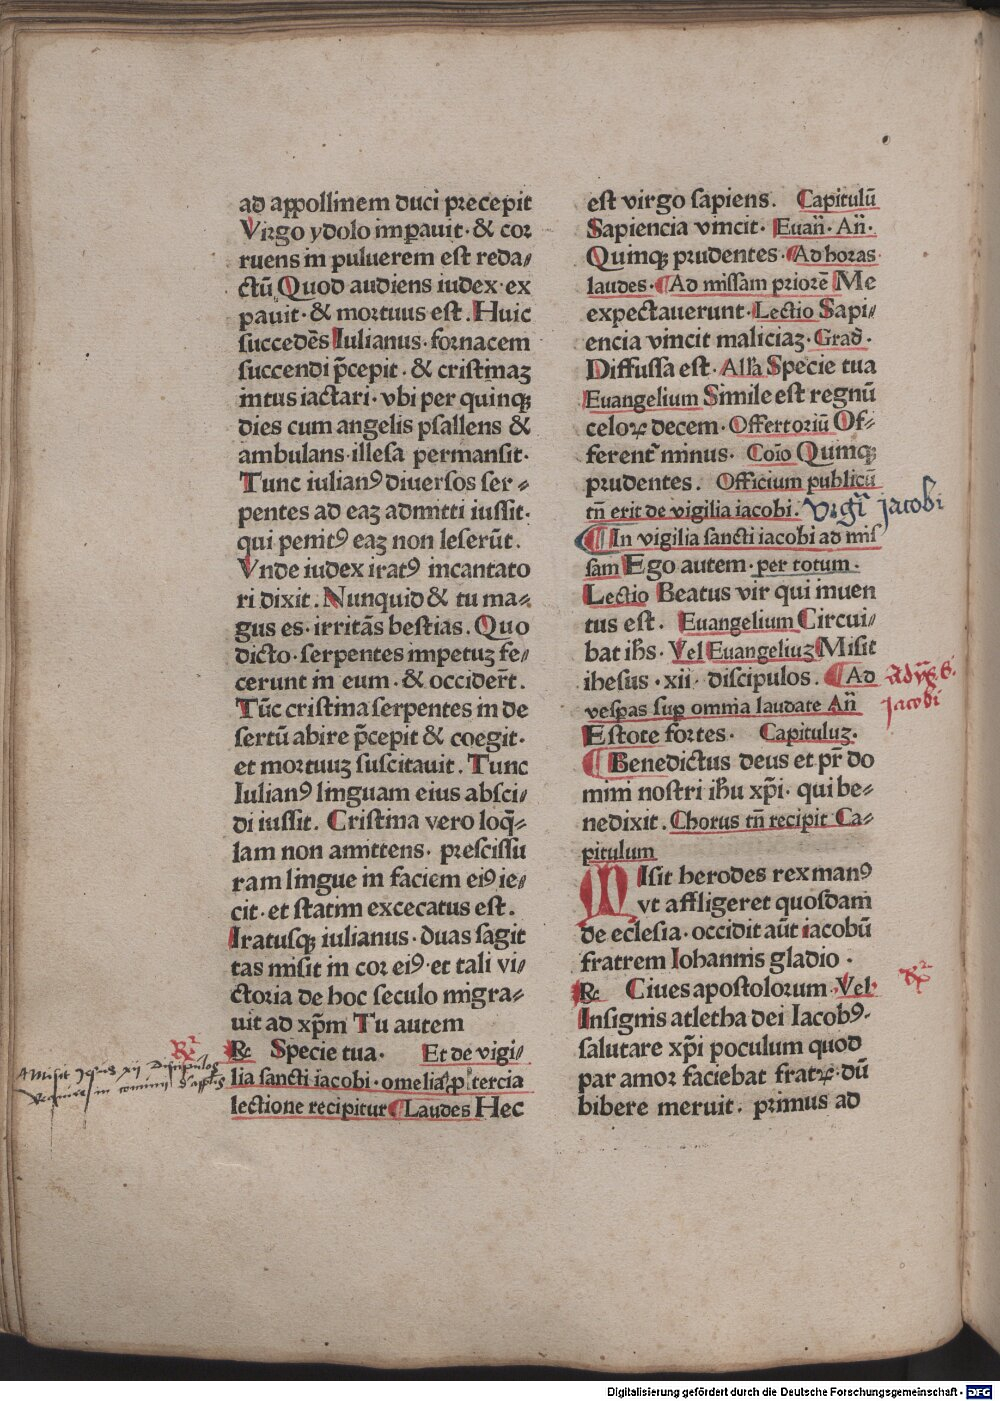 ad appollinem duci precepit
Virgo ydolo imꝑauit · & cor
ruens in puluerem est reda⸗
ctū Quod audiens iudex · ex
pauit · & mortuus est . Huic
succedēs Iulianus · fornacem
succendi p̄cepit . & cristinaꝫ
intus iactari · vbi per quinqꝫ
dies cum angelis psallens &
ambulans · illesa permansit ·
Tunc iulianꝰ diuersos ser⸗
pentes ad eaꝫ admitti iussit ·
qui penitꝰ eaꝫ non leserūt .
Vnde iudex iratꝰ incantato
ri dixit . Nunquid & tu ma⸗
gus es · irritās bestias . Quo
dicto · serpentes impetuꝫ fe⸗
cerunt in eum · & occiderūt .
Tūc cristina serpentes in de
sertū abire p̄cepit & coegit ·
et mortuuꝫ suscitauit . Tunc
Iulianꝰ linguam eius absci⸗
di iussit . Cristina vero loq̄⸗
lam non amittens · prescissu
ram lingue in faciem eiꝰ ie⸗
cit · et statim excecatus est .
Iratusqꝫ iulianus · duas sagit
tas misit in cor eiꝰ · et tali vi⸗
ctoria de hoc seculo migra⸗
uit ad xp̄m Tu autem
℞ Specie tua · Et de vigi⸗
lia sancti iacobi · omelia ꝓ tercia
lectione recipitur Laudes Hec
℞
Misit Jesus xij Discipulos
est virgo sapiens . Capitulū
Sapiencia vincit · Euan̄ · An̄ ·
Quinqꝫ prudentes · Ad horas
laudes · Ad missam priorē Me
expectauerunt · Lectio Sapi⸗
encia vincit maliciaꝫ · Grad̄ ·
Diffussa est · Alľa Specie tua
Euangelium Simile est regnū
celoꝝ decem · Offertoriū Of⸗
ferent᷑ minus · Coīo Quinqꝫ
prudentes . Officium publicū
tn̄ erit de vigilia iacobi .
Vigi Jacobi
In vigilia sancti iacobi ad mis
sam Ego autem · per totum ·
Lectio Beatus vir qui inuen
tus est . Euangelium Circui⸗
bat ih̄s · Vel Euangeliuꝫ Misit
ihesus · xii · discipulos . Ad
Jacobi
vesꝑas suꝑ omnia laudate An̄
Estote fortes · Capituluꝫ ·
Benedictus deus et pr̄ do
mini nostri ih̄u xp̄i · qui be⸗
nedixit . Chorus tn̄ recipit Ca⸗
pitulum
MIsit herodes rex manꝰ
vt affligeret quosdam
de ecclesia · occidit aūt iacobū
fratrem Iohannis gladio ·
℞ Ciues apostolorum · Vel ·
Insignis atletha dei Iacobꝰ ·
salutare xp̄i poculum quod
par amor faciebat fratꝝ · dū
bibere meruit . primus ad
Digitalisierung gefördert durch die Deutsche Forschungsgemeinschaft - DFG